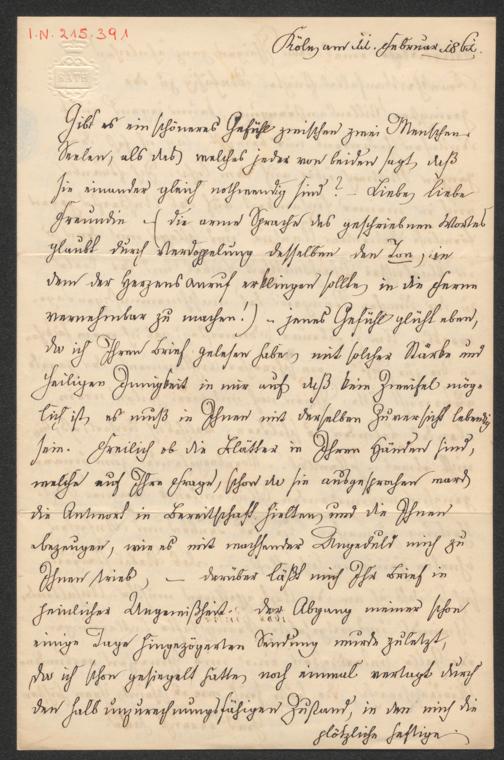 I.N. 215.391
BATH
Köln, am 11. Februar 1862.
Gibt es ein schöneres Gefühl zwischen zwei Menschen-
Seelen, als das, welches jeder von beiden sagt, daß
sie einander gleich nothwendig sind? – Liebe, liebe
Freundin – (die arme Sprache des geschriebnen Wortes
glaubt durch Verdoppelung desselben den Ton, in
dem der Herzensanruf erklingen sollte, in die Ferne
vernehmbar zu machen!) – jenes Gefühl glüht eben,
da ich Ihren Brief gelesen habe, mit solcher Stärke und
heiligen Innigkeit in mir auf, daß kein Zweifel mög-
lich ist, es muß in Ihnen mit derselben Zuversicht lebendig
sein. Freilich ob die Blätter in Ihren Händen sind,
welche auf Ihre Frage, schon da sie ausgesprochen ward,
die Antwort in Bereitschaft hielten, und die Ihnen
bezeugen, wie es mit wachsender Ungeduld mich zu
Ihnen trieb, – darüber läßt mich Ihr Brief in
peinlicher Ungewißheit. Der Abgang meiner schon
einige Tage hingezögerten Sendung wurde zuletzt,
da ich schon gesiegelt hatte, noch einmal vertagt durch
den halb unzurechnungsfähigen Zustand, in den mich die
plötzliche heftige